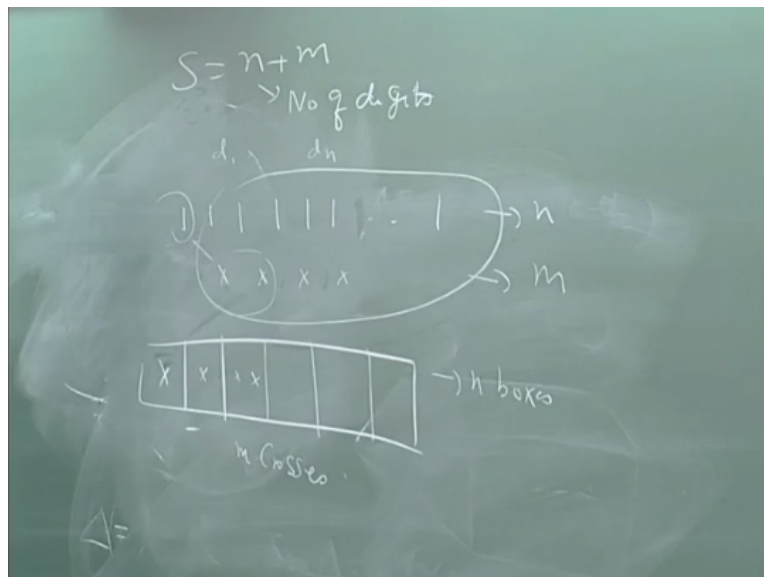 S = n+m
→ No of digits
d₁ dn
| | | | | | ... | → n
x x x x → m
x x x x → n boxes
m Crosses.
Δ =